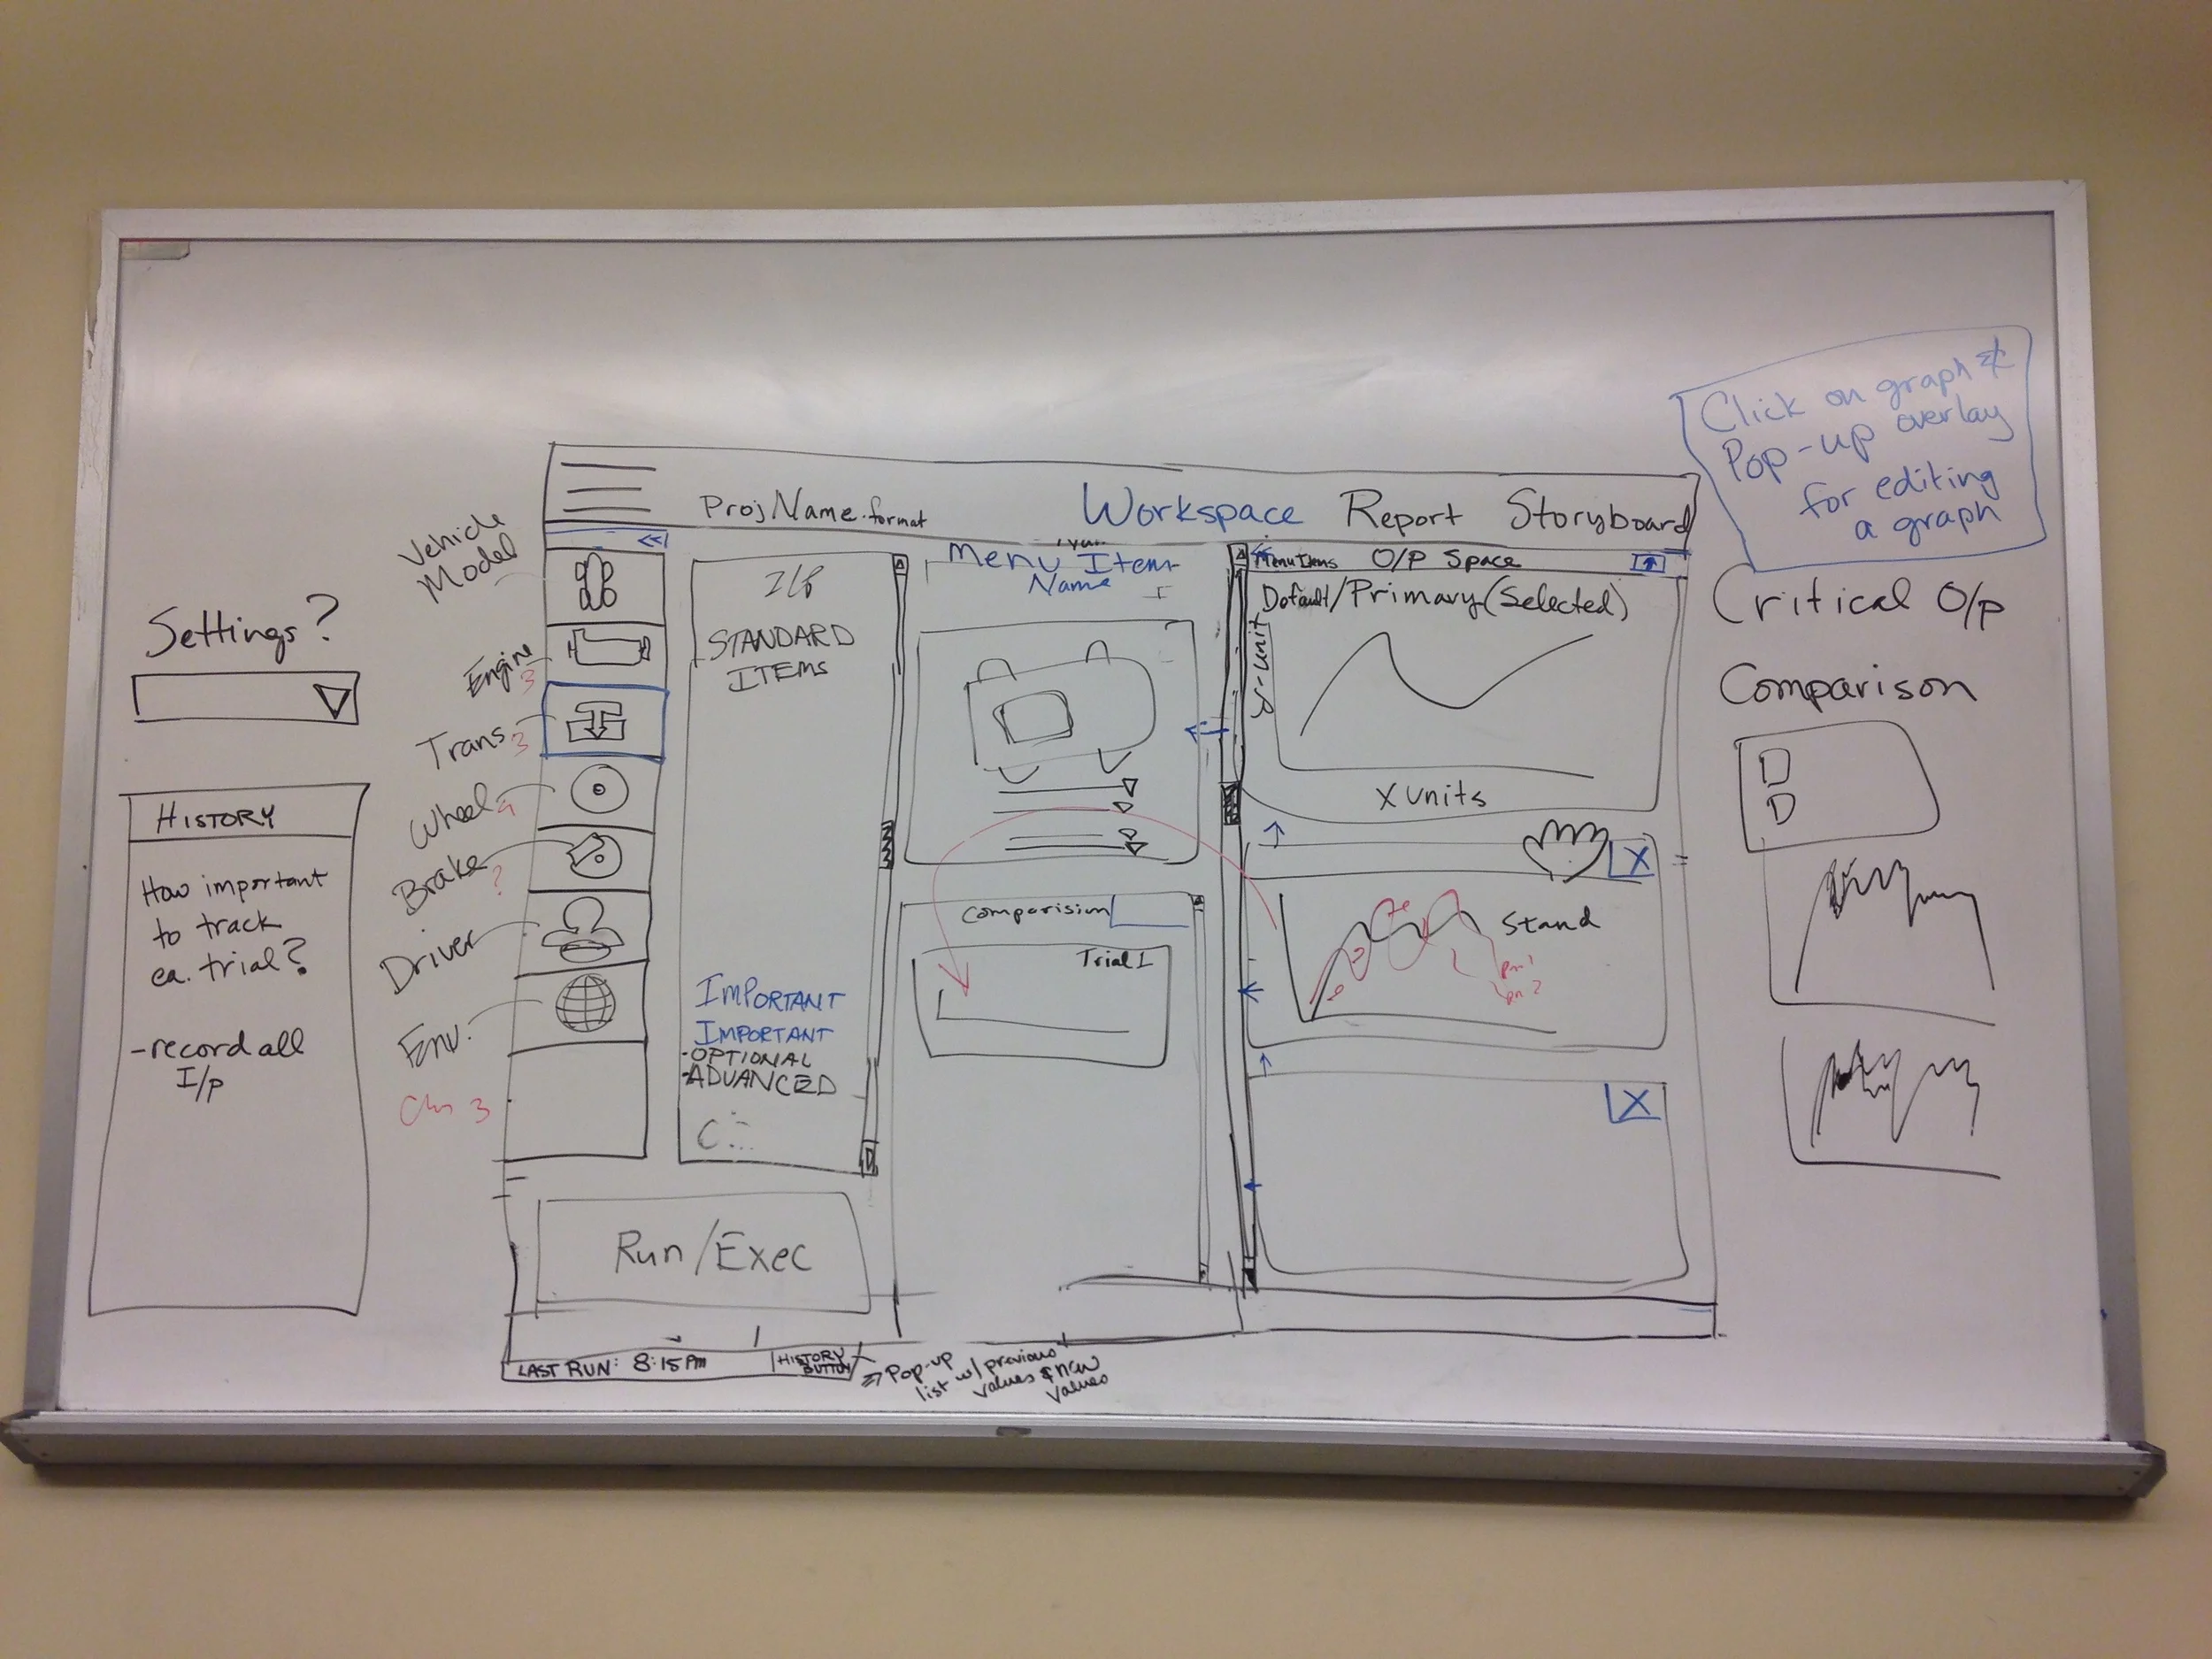 Settings?
HISTORY
How important
to track
ea. trial?
-record all
I/p
Vehicle
Model
Engine
3
Trans
3
Wheel
4
Brake
?
Driver
Env.
3
Proj Name.format
Workspace
Report
Storyboard
<<|
STANDARD
ITEMS
IMPORTANT
IMPORTANT
-OPTIONAL
-ADVANCED
Run/Exec
LAST RUN: 8:15 PM
HISTORY
BUTTON
=> Pop-up
list w/ previous
values & new
values
Menu Item
Name
Comparision
Trial I
Menu Items
O/P Space
Default/Primary (Selected)
y-unit
X Units
X
Stand
X
Click on graph &
Pop-up overlay
for editing
a graph
Critical O/p
Comparison